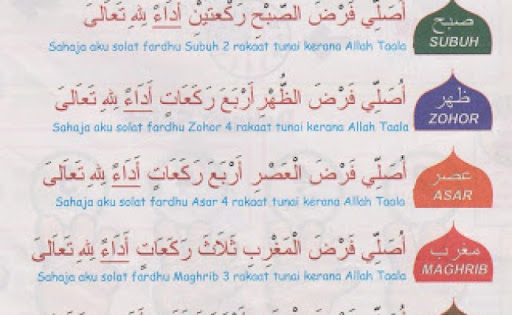 أُصَلِّي فَرْضَ الصُّبْحِ رَكْعَتَيْنِ أَدَاءً لِلّٰهِ تَعَالَىٰ
صبح
Sahaja aku solat fardhu Subuh 2 rakaat tunai kerana Allah Taala
SUBUH
أُصَلِّي فَرْضَ الظُّهْرِ أَرْبَعَ رَكَعَاتٍ أَدَاءً لِلّٰهِ تَعَالَىٰ
ظهر
Sahaja aku solat fardhu Zohor 4 rakaat tunai kerana Allah Taala
ZOHOR
أُصَلِّي فَرْضَ الْعَصْرِ أَرْبَعَ رَكَعَاتٍ أَدَاءً لِلّٰهِ تَعَالَىٰ
عصر
Sahaja aku solat fardhu Asar 4 rakaat tunai kerana Allah Taala
ASAR
أُصَلِّي فَرْضَ الْمَغْرِبِ ثَلَاثَ رَكَعَاتٍ أَدَاءً لِلّٰهِ تَعَالَىٰ
مغرب
Sahaja aku solat fardhu Maghrib 3 rakaat tunai kerana Allah Taala
MAGHRIB